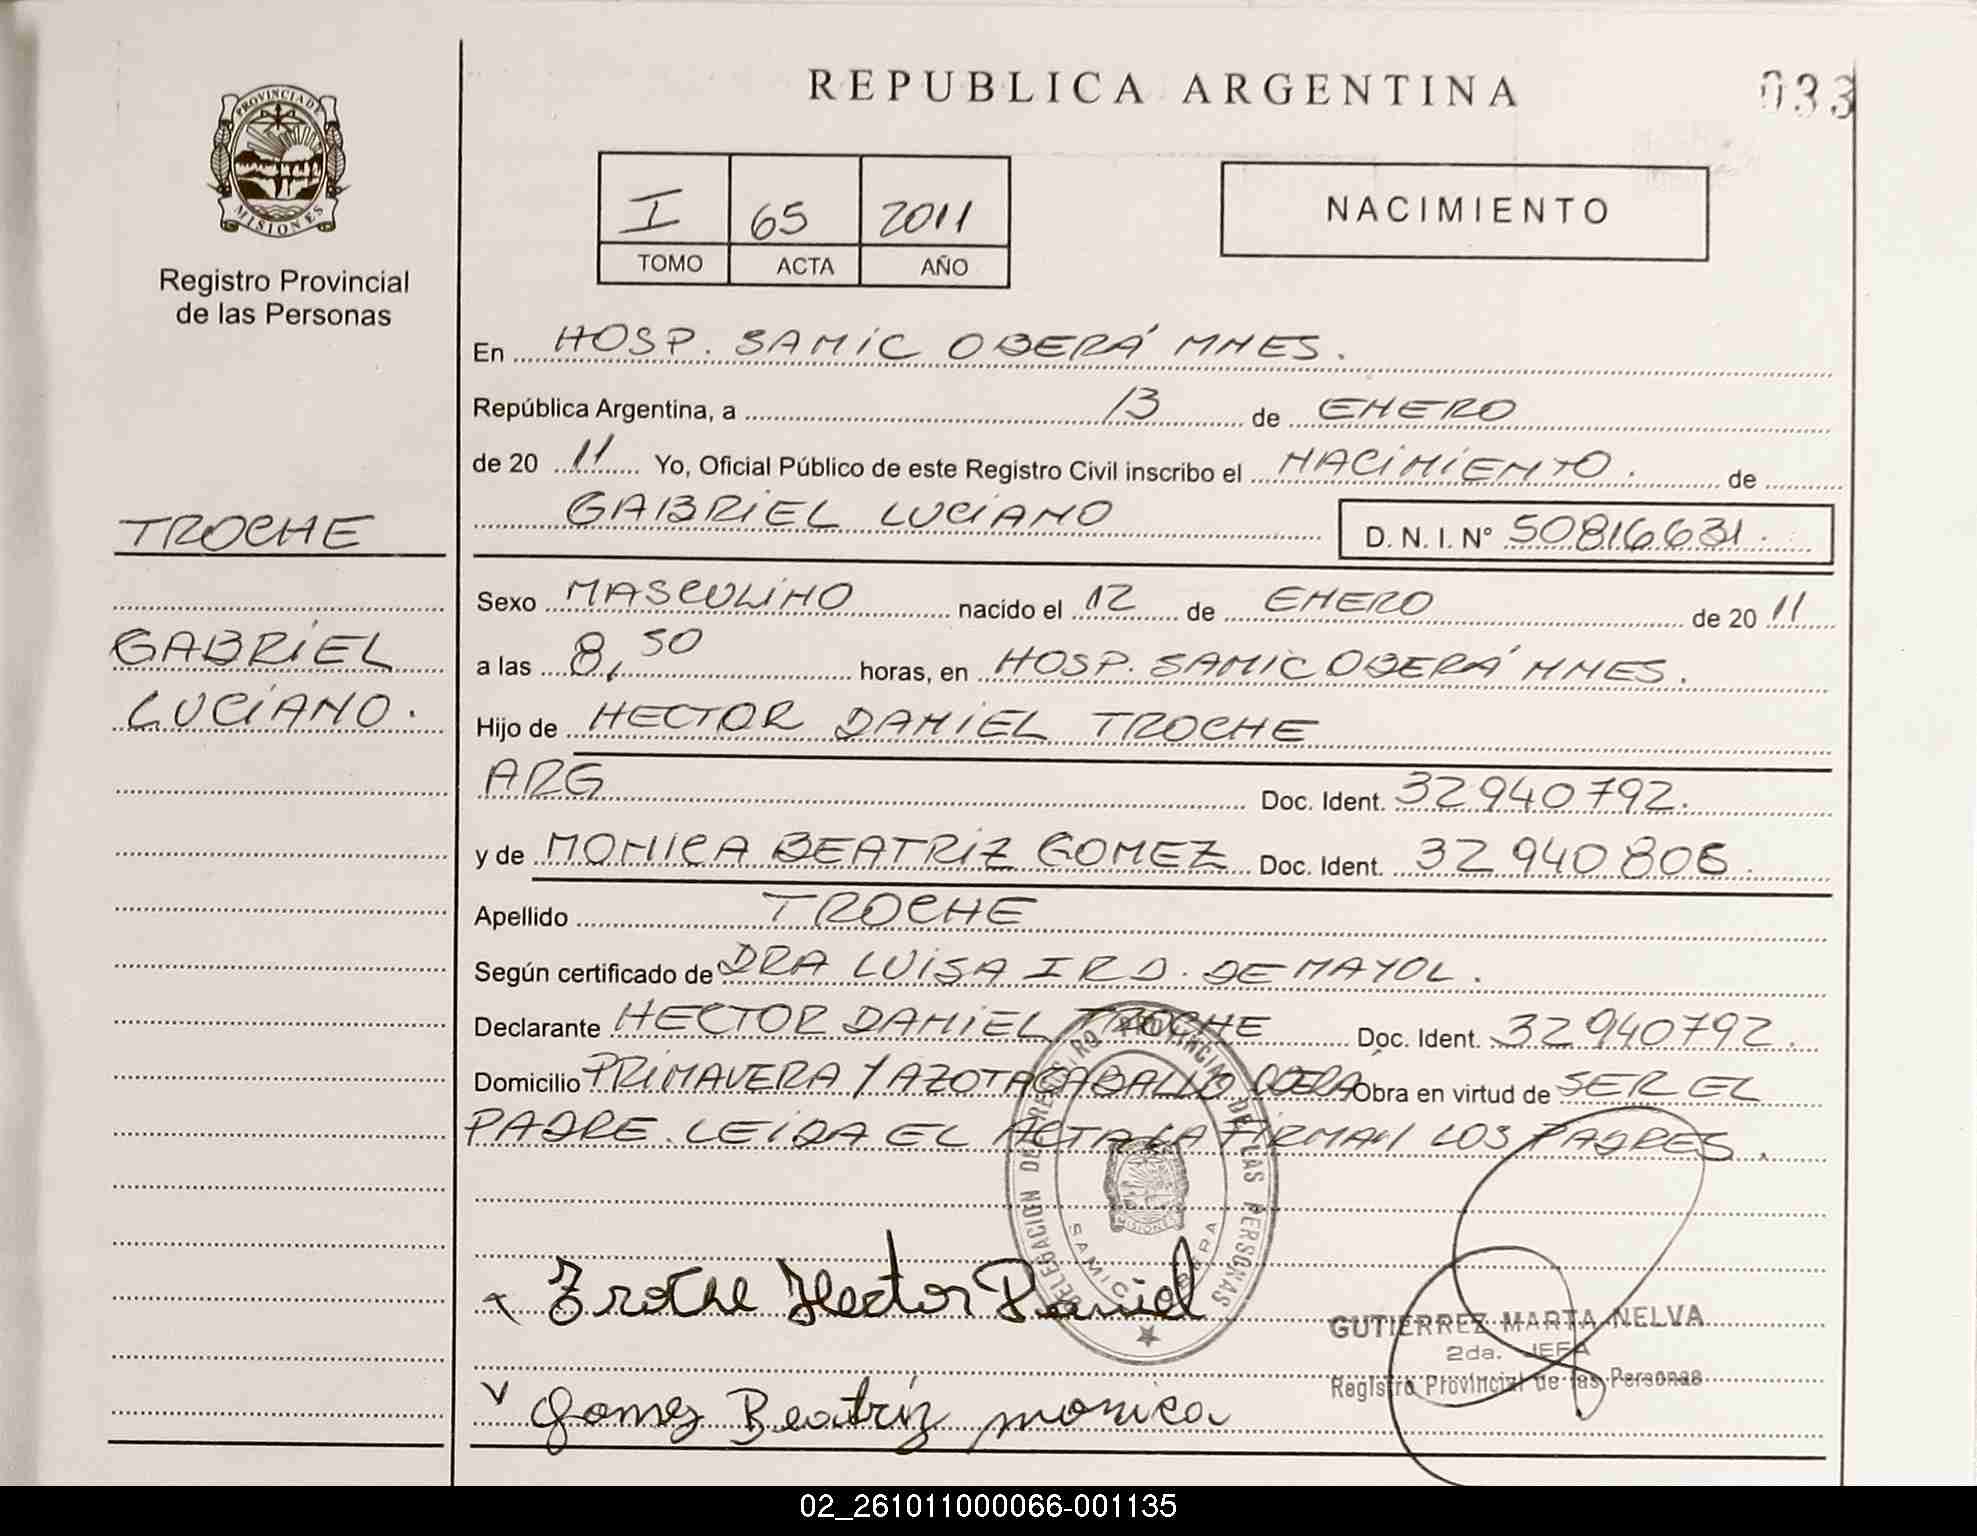 REPUBLICA ARGENTINA
033
PROVINCIA DE
MISIONES
Registro Provincial
de las Personas
I 65 2011
TOMO ACTA AÑO
NACIMIENTO
En HOSP. SAMIC OBERÁ MNES.
República Argentina, a 13 de ENERO
de 20 11 Yo, Oficial Público de este Registro Civil inscribo el NACIMIENTO. de
GABRIEL LUCIANO D. N. I. N° 50816631.
TROCHE
GABRIEL
LUCIANO.
Sexo MASCULINO nacido el 12 de ENERO de 20 11
a las 8,50 horas, en HOSP. SAMIC OBERÁ MNES.
Hijo de HECTOR DANIEL TROCHE
ARG Doc. Ident. 32940792.
y de MONICA BEATRIZ GOMEZ Doc. Ident. 32940806.
Apellido TROCHE
Según certificado de DRA LUISA I R D. DE MAYOL.
Declarante HECTOR DANIEL TROCHE Doc. Ident. 32940792.
Domicilio PRIMAVERA Y AZOTACABALLO OBERA Obra en virtud de SER EL
PADRE. LEIDA EL ACTA LA FIRMAN LOS PADRES.
DELEGACION DEL REGISTRO PROVINCIAL DE LAS PERSONAS
MISIONES
SAMIC OBERA
Troche Hector Daniel
GUTIERREZ MARTA NELVA
2da. JEFA
Registro Provincial de las Personas
Gomez Beatriz monica
02_261011000066-001135